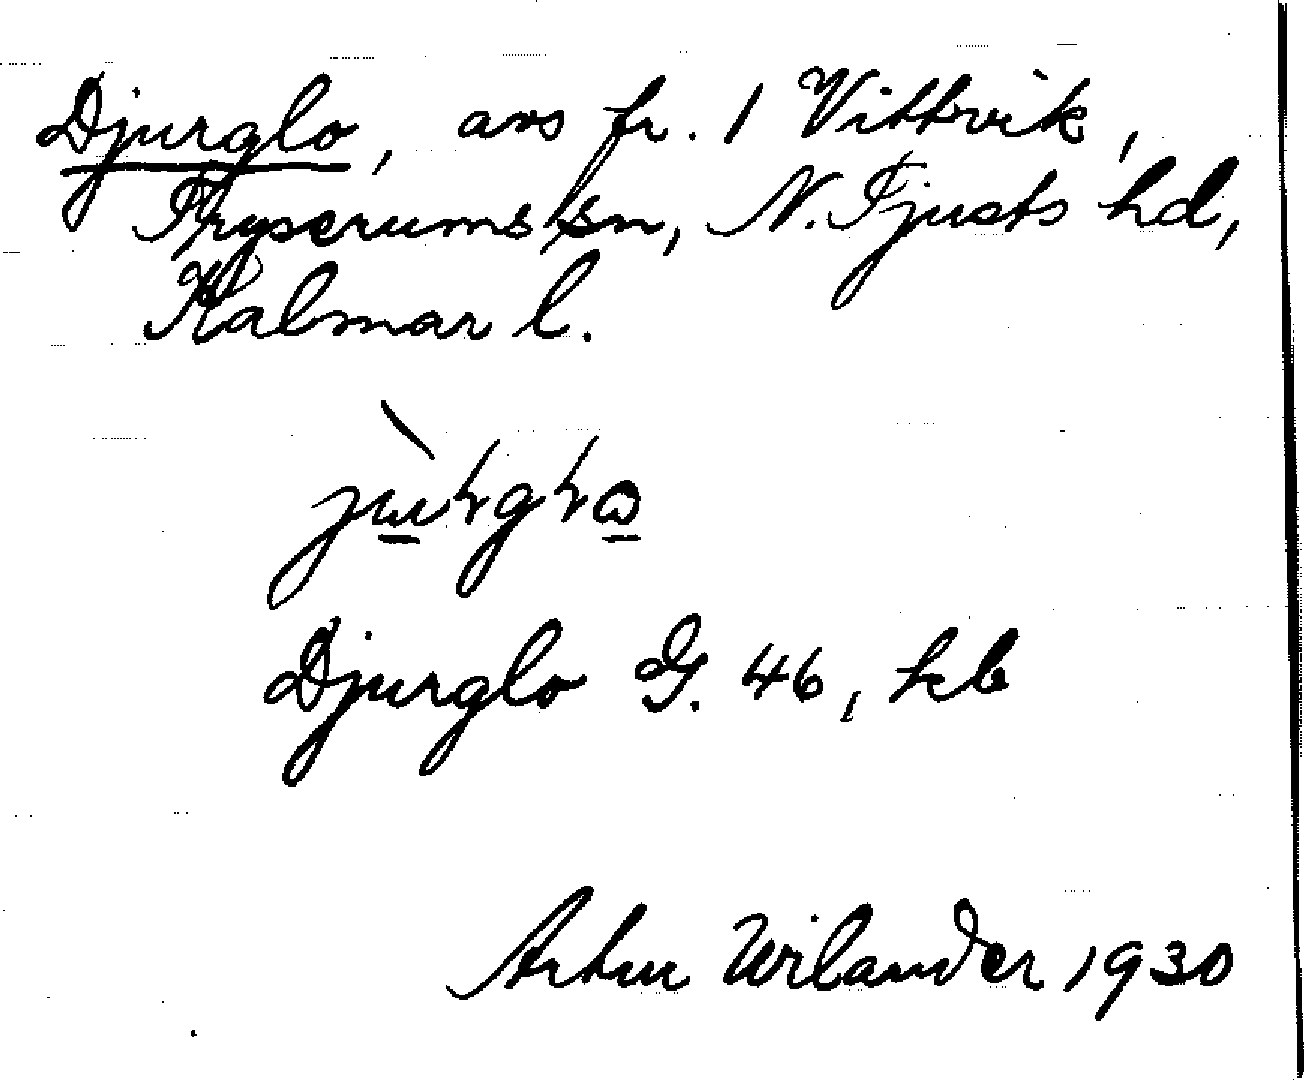 Djurglo, avs fr. 1 Vittvik,
Tryserums sn, N. Tjusts hd,
Kalmar l.
Djurglo G. 46, kb
Artur Wilander 1930